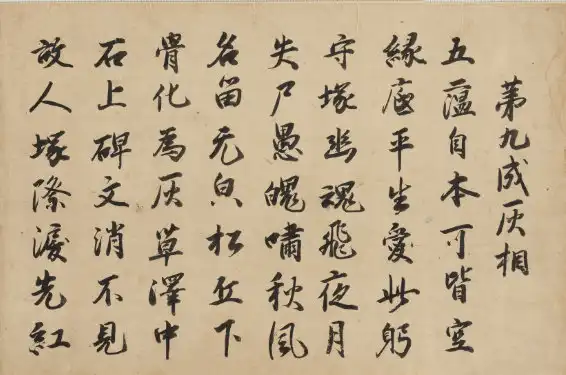 第九成灰相
五蘊自本可皆空
緣底平生愛此躬
守塚幽魂飛夜月
失尸愚魄嘯秋風
名留无㒵松丘下
骨化為灰草澤中
石上碑文消不見
故人塚際淚先紅